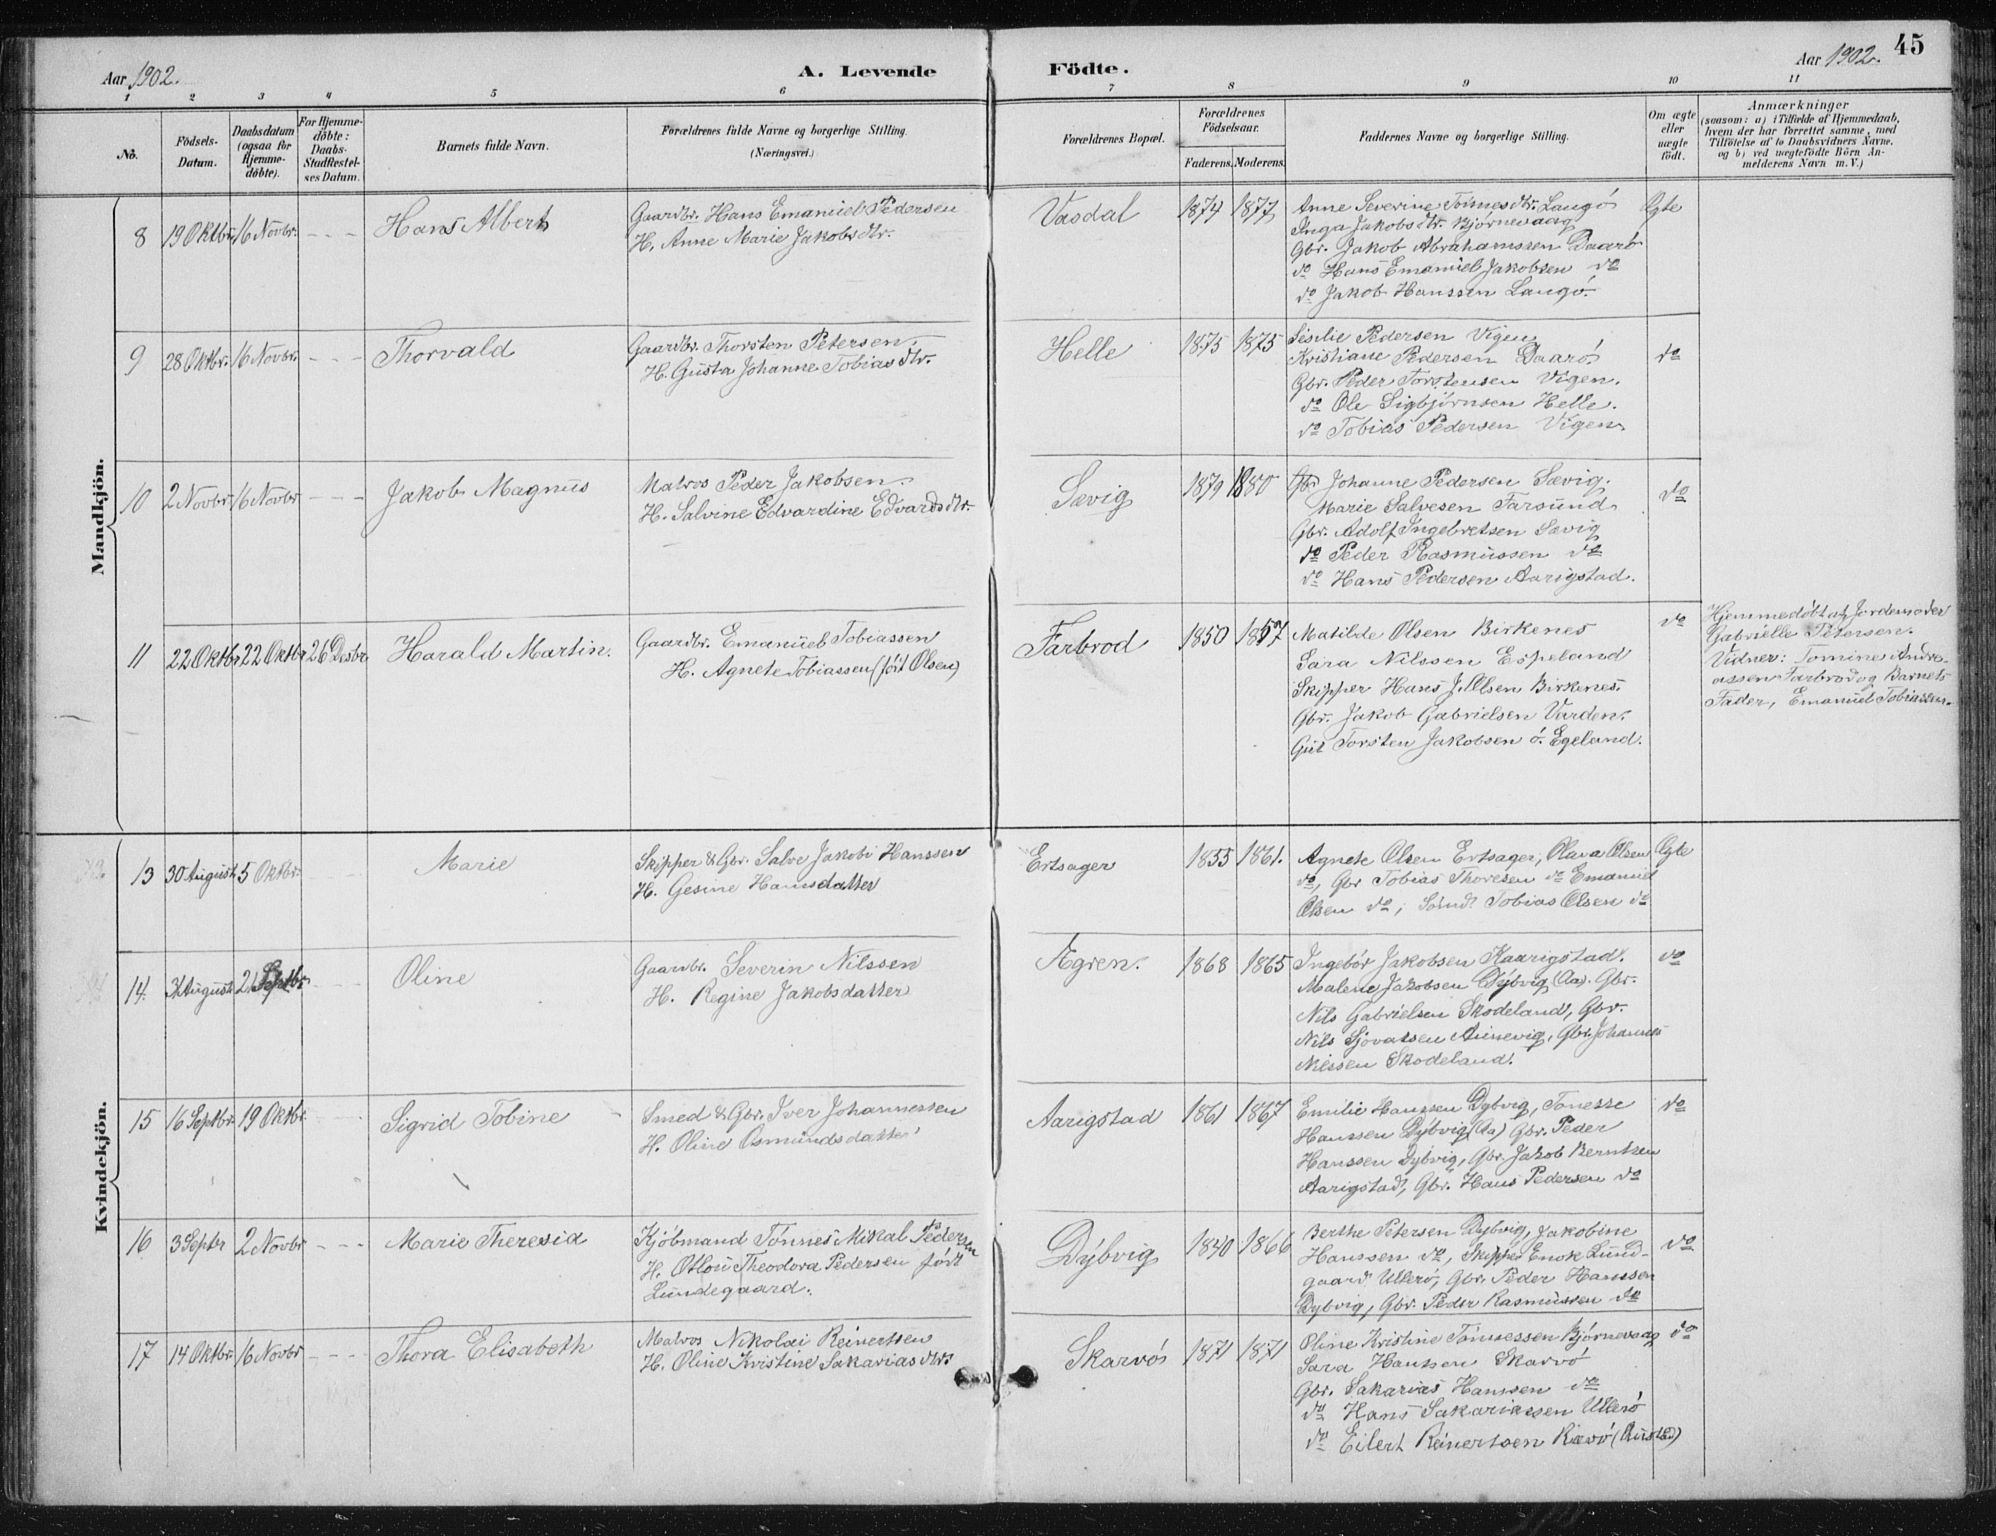 45
Aar 1902.
A. Levende Födte.
Aar 1902.
1 2 3 4 5 6 7 8 9 10 11
No.
Födsels-Datum.
Daabsdatum (ogsaa for Hjemme-döbte).
For Hjemme-döbte: Daabs-Stadfæstel-ses Datum.
Barnets fulde Navn.
Forældrenes fulde Navne og borgerlige Stilling.
(Næringsvei.)
Forældrenes Bopæl.
Forældrenes Födselsaar.
Faderens. Moderens.
Faddernes Navne og borgerlige Stilling.
Om ægte eller uægte födt.
Anmærkninger
(saasom: a) i Tilfælde af Hjemmedaab,
hvem der har forrettet samme, med
Tilföielse af to Daabsvidners Navne,
og b) ved uægtefödte Börn An-
melderens Navn m. V.)
Mandkjön.
8 19 Oktbr. 16 Novbr. - - - Hans Albert
Gaardbr. Hans Emanuel Pedersen
H. Anne Marie Jakobsdtr.
Vasdal 1874 1877
Anne Severine Tönnesdtr. Langö
Inga Jakobsdtr. Björnevaag
Gbr. Jakob Abrahamssen Daarö
do Hans Emanuel Jakobsen do
do Jakob Hanssen Langö.
Ægte
9 28 Oktbr. 16 Novbr. - - - Thorvald
Gaardbr. Thorsten Petersen.
H. Gusta Johanne Tobiasdtr.
Helle 1875 1875
Sesilie Pedersen Vigen
Kristiane Pedersen Daarö
Gbr. Peder Torstensen Vigen.
do Ole Sigbjörnsen Helle.
do Tobias Pedersen Vigen.
do
10 2 Novbr. 16 Novbr - - - Jakob Magnus
Matros Peder Jakobsen.
H. Salvine Edvardine Edvardsdtr.
Sævig 1879 1880
Johanne Pedersen Sævig.
Marie Salvesen Farsund
Gbr. Adolf Ingebretsen Sævig
do Peder Rasmussen do
do Hans Pedersen Aarigstad.
do
11 22 Oktbr 22 Oktbr 26 Desbr. Harald Martin.
Gaardbr. Emanuel Tobiassen
H. Agnete Tobiassen (föit Olsen)
Farbrod 1850 1857
Matilde Olsen Birkenes
Sara Nilssen Espeland
Skipper Hans J. Olsen Birkenes.
Gbr. Jakob Gabrielsen Varden.
Gut Torsten Jakobsen ö. Egeland.
do
Hjemmedöbt af Jordemoder
Gabrielle Petersen.
Vidner: Tomine Andre-
assen Farbrod og Barnets
Fader, Emanuel Tobiassen.
Kvindekjön.
13 30 August 5 Oktbr. Marie
Skipper & Gbr. Salve Jakobi Hanssen
H. Gesine Hansdatter
Ertsager 1855 1861.
Agnete Olsen Ertsager, Olava Olsen
do, Gbr Tobias Thoresen do Emanuel
Olsen do, Tobias Olsen do
Ægte
14. 31 August 21 Septbr Oline
Gaardbr. Severin Nilssen
H. Regine Jakobsdatter
Ægren. 1868 1865
Ingebör Jakobsen Kaarigstad.
Malene Jakobsen Dybvig (Aa). Gbr.
Nils Gabrielsen Skodeland, Gbr.
Nils Sjovatsen Aunevig, Gbr. Johannes
Nilssen Skodeland.
do
15 16 Septbr. 19 Oktbr. Sigrid Tobine
Smed & Gbr. Iver Johannessen
H. Oline Osmundsdatter
Aarigstad 1861 1867
Emilie Hanssen Dybvig, Tonesse
Hanssen Dybvig (Aa) Gbr. Peder
Hanssen Dybvig, Gbr. Jakob Berntsen
Aarigstad, Gbr. Hans Pedersen do
do
16 3 Septbr 2 Novbr - - - Marie Theresia
Kjöbmand Tönnes Mikal Pedersen
H. Otlou Theodora Pedersen födt
Lundegaard.
Dybvig 1840 1866
Berthe Petersen Dybvig, Jakobine
Hanssen do, Skipper Enok Lund-
gaard Ullerö, Gbr. Peder Hanssen
Dybvig, Gbr. Peder Rasmussen do
do
17 14 Oktbr. 16 Novbr - - - Thora Elisabeth
Matros Nikolai Reinertsen
H. Oline Kristine Sakariasdtr.
Skarvö 1871 1871
Oline Kristine Tönnessen Björnevaag
Sara Hanssen Skarvö
Gbr. Sakarias Hanssen do
do Hans Sakariassen Ullerö
do Eilert Reinertsen Rævö (Austad)
do